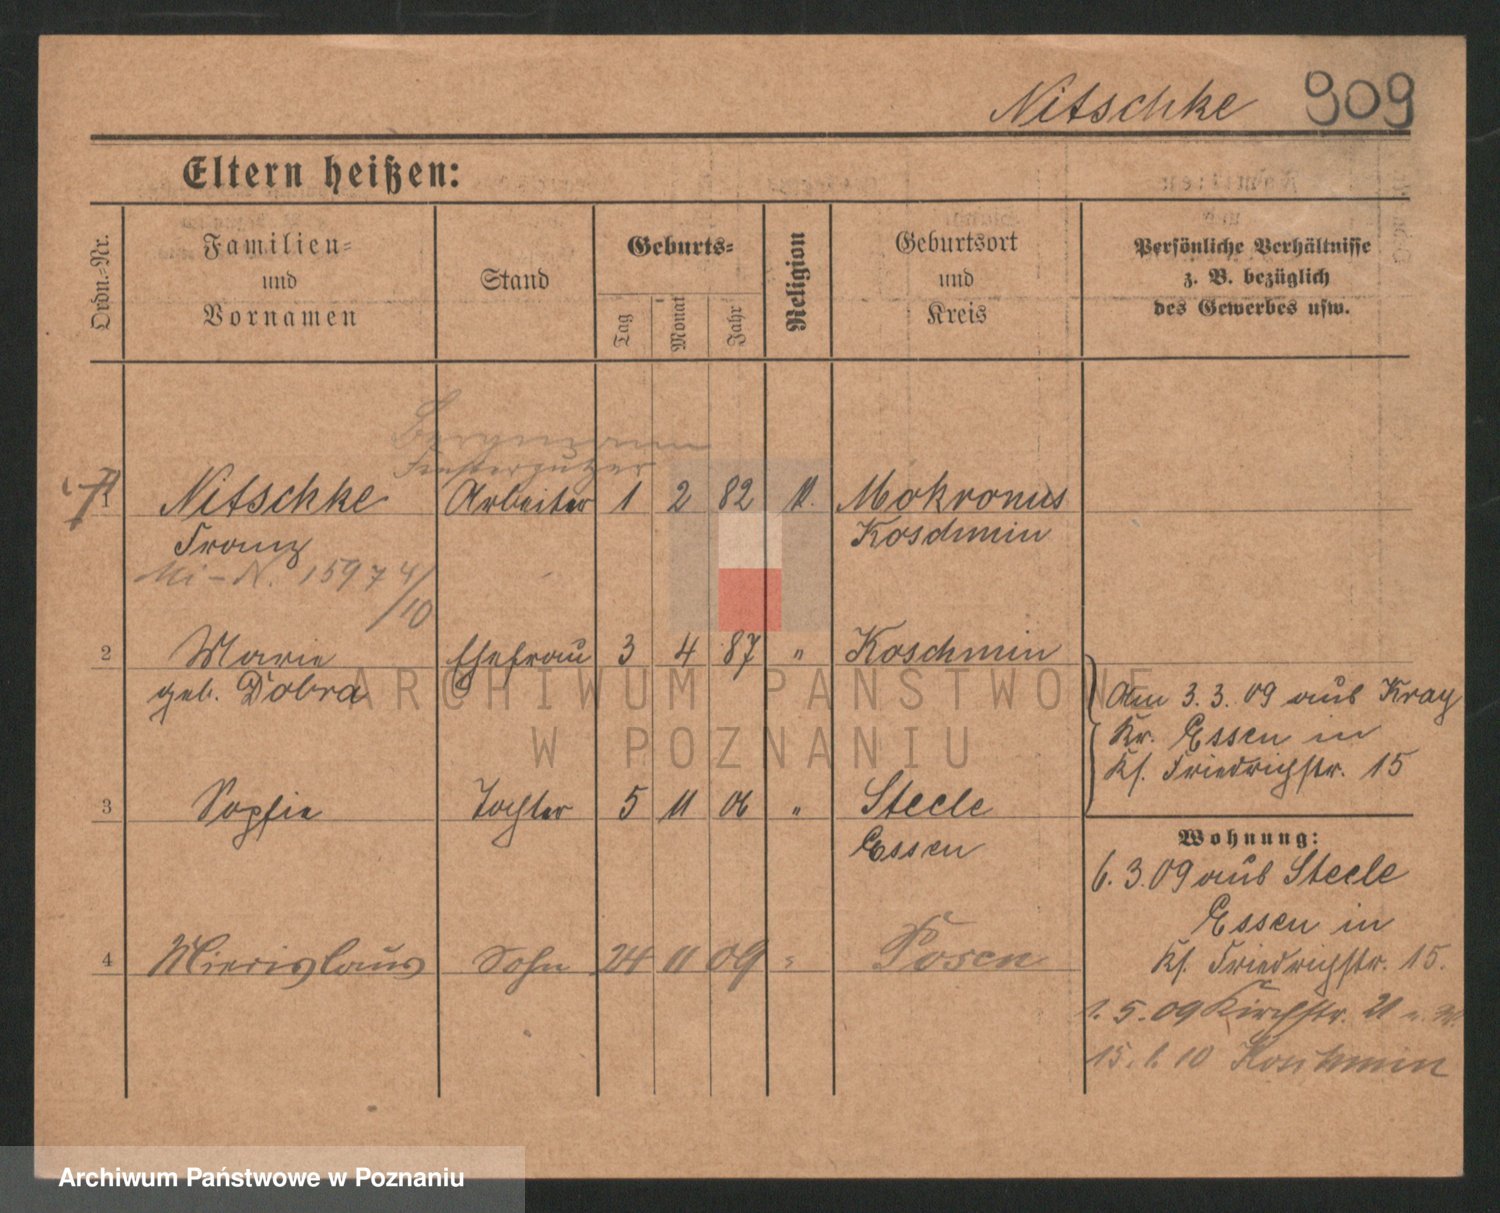 Nitschke 909
Eltern heißen:
Ordn.-Nr.
Familien-
und
Vornamen
Stand
Geburts-
Tag
Monat
Jahr
Religion
Geburtsort
und
Kreis
Persönliche Verhältnisse
z. B. bezüglich
des Gewerbes usw.
Bergmann
Fensterputzer
1 Nitschke Arbeiter 1 2 82 Mokronus
Franz Koschmin
1597 4/10
2 Marie Ehefrau 3 4 87 " Koschmin
geb. Dobra
Am 3.3.09 aus Kray
Kr. Essen in
Kf. Friedrichstr. 15
3 Sophie Tochter 5 11 06 " Steele
Essen
Wohnung:
6.3.09 aus Steele
Essen in
Kf. Friedrichstr. 15.
4 Sohn 24 11 09 " Posen
1.5.09 Kirchstr. 21
ARCHIWUM PAŃSTWOWE
W POZNANIU
Archiwum Państwowe w Poznaniu